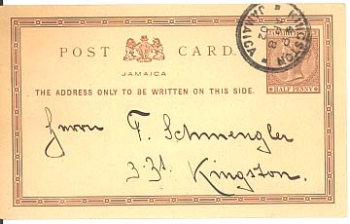 POST CARD.
JAMAICA
THE ADDRESS ONLY TO BE WRITTEN ON THIS SIDE.
KINGSTON
JAMAICA
HALF PENNY
Herrn F. Schmengler
z. Zt. Kingston.